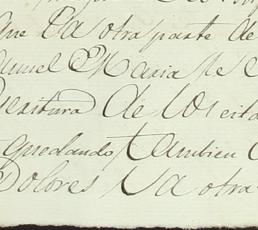 que la otra parte de
Maria de
escritura de los cita
quedando tambien
Dolores la otra